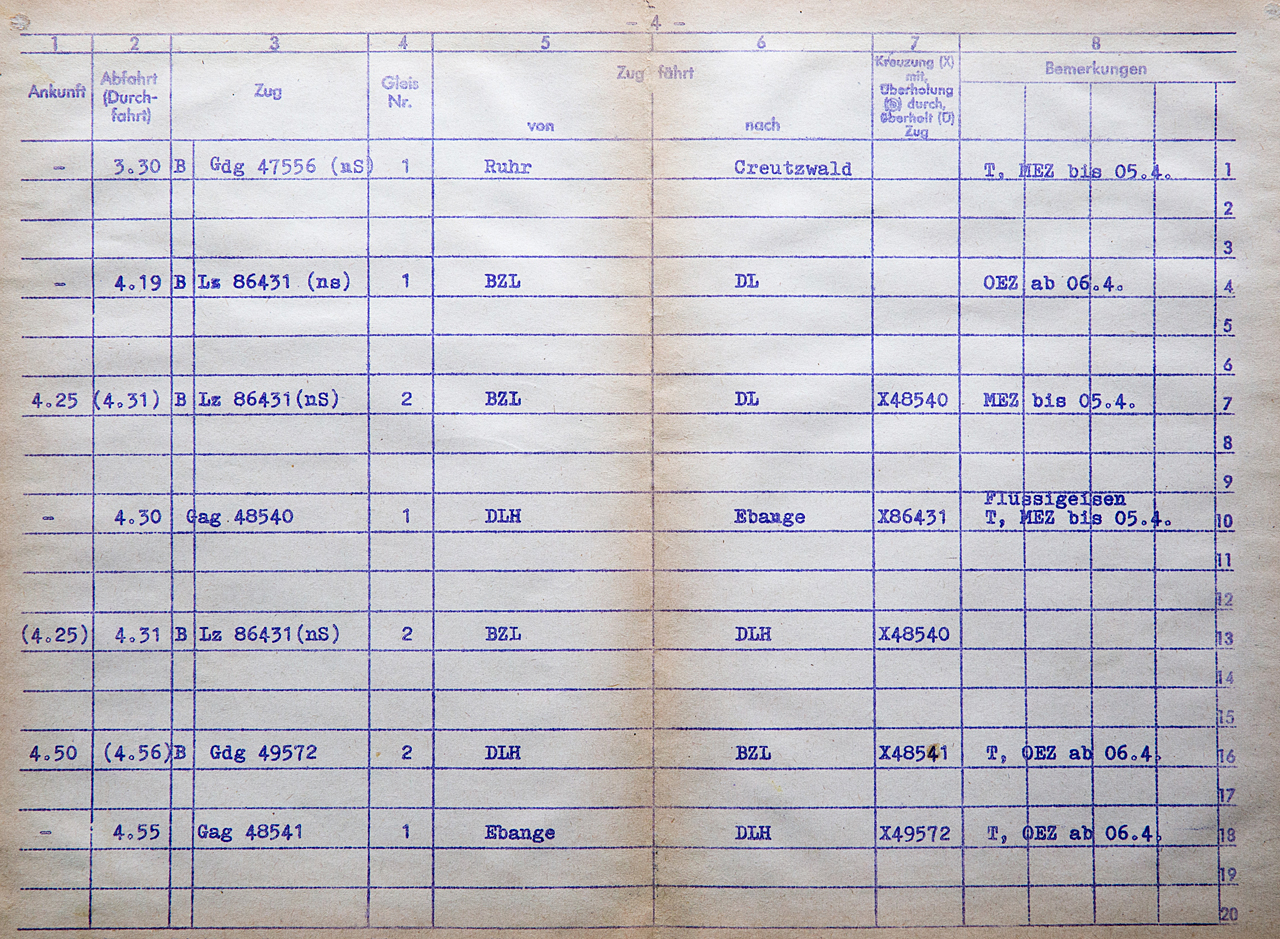 - 4 -
1 2 3 4 5 6 7 8
Ankunft
Abfahrt
(Durch-
fahrt)
Zug
Gleis
Nr.
Zug fährt
von
nach
Kreuzung (X)
mit,
Überholung
durch,
überholt (Ü)
Zug
Bemerkungen
- 3.30 B Gdg 47556 (nS) 1 Ruhr Creutzwald T, MEZ bis 05.4. 1
2
3
- 4.19 B Lz 86431 (ns) 1 BZL DL OEZ ab 06.4. 4
5
6
4.25 (4.31) B Lz 86431(nS) 2 BZL DL X48540 MEZ bis 05.4. 7
8
9
Flüssigeisen
- 4.30 Gag 48540 1 DLH Ebange X86431 T, MEZ bis 05.4. 10
11
12
(4.25) 4.31 B Lz 86431(nS) 2 BZL DLH X48540 13
14
15
4.50 (4.56) B Gdg 49572 2 DLH BZL X48541 T, OEZ ab 06.4. 16
17
- 4.55 Gag 48541 1 Ebange DLH X49572 T, OEZ ab 06.4. 18
19
20